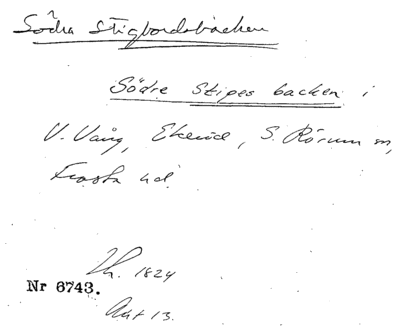 Södra Stigbordsbacken
Södre Stipes backen i
V. Vång, Ekeröd, S. Rörum sn,
Frosta hd.
Lh. 1824
Nr 6743.
Akt 13.